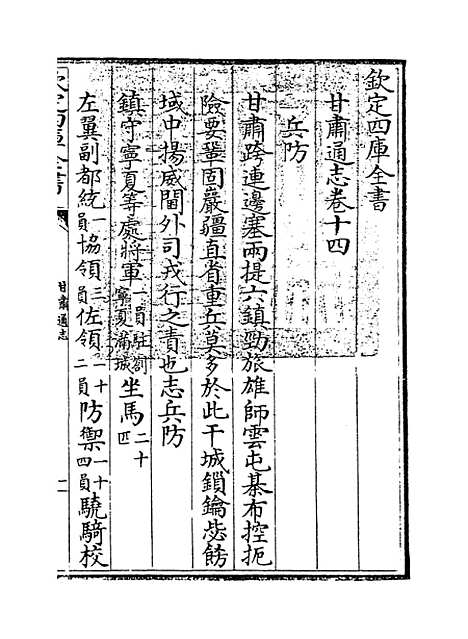 欽定四庫全書
甘肅通志卷十四
兵防
甘肅跨連邊塞兩提六鎮勁旅雄師雲屯棊布控扼
險要鞏固嚴疆直省重兵莫多於此干城鎖鑰毖飭
域中揚威閫外司戎行之責也志兵防
鎮守寧夏等處將軍一員駐劄寧夏滿城坐馬二十匹
左翼副都統一員協領三員佐領一十二員防禦一十四員驍騎校
欽定四庫全書
甘肅通志
一